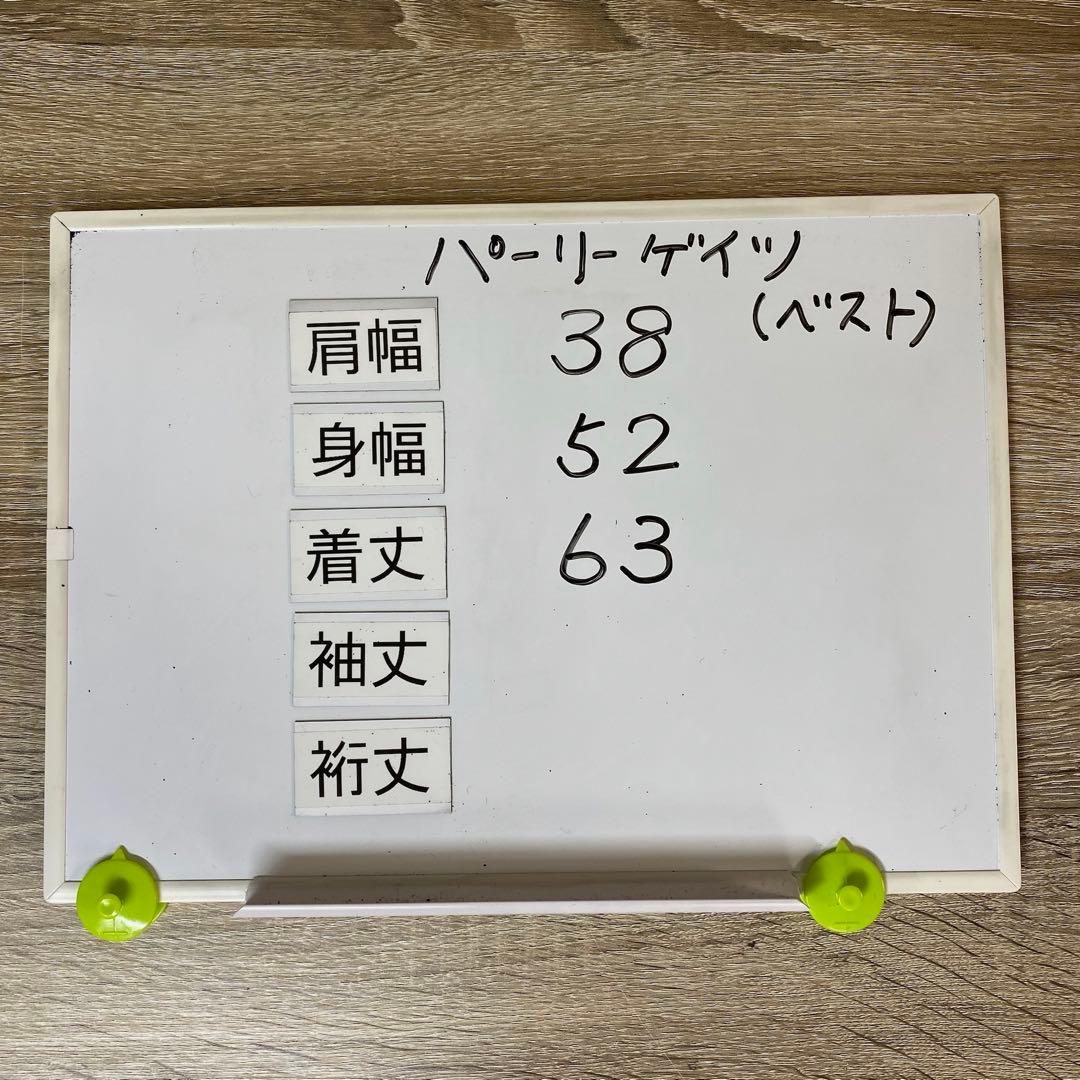 パーリーゲイツ
(ベスト)
肩幅 38
身幅 52
着丈 63
袖丈
裄丈